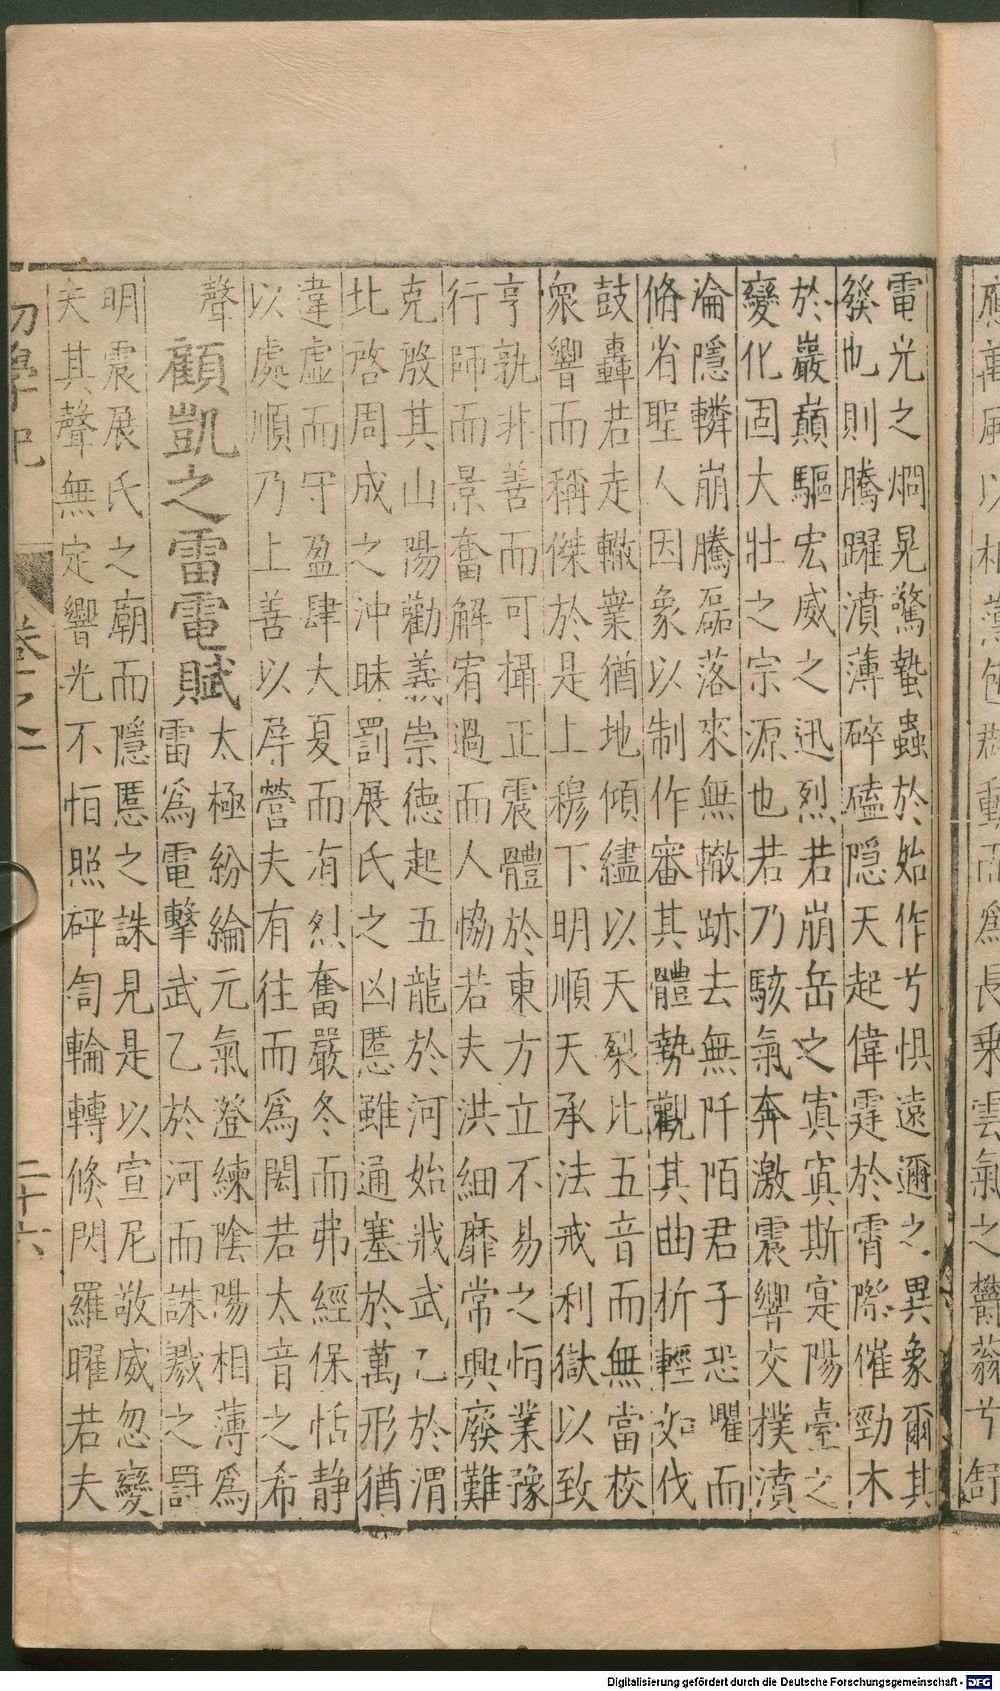 電光之烱晃驚蟄蟲於始作兮懼遠邇之異象爾其
發也則騰躍濆薄碎磕隱天起偉霆於霄際催勁木
於巖巔驅宏威之迅烈若崩岳之寘寘斯寔陽臺之
變化固大壯之宗源也若乃駭氣奔激震響交撲濆
淪隱轔崩騰磊落來無轍跡去無阡陌君子恐懼而
脩省聖人因象以制作審其體勢觀其曲折輕如伐
鼓轟若走轍業猶地傾繣以天裂比五音而無當校
衆響而稱傑於是上穆下明順天承法戒利獄以致
亨孰非善而可攝正震體於東方立不易之恒業豫
行師而景奮解宥過而人恊若夫洪細靡常興廢難
克殷其山陽勸義崇徳起五龍於河始戕武乙於渭
北啓周成之沖昧罰展氏之凶慝雖通塞於萬形猶
違虛而守盈肆大夏而有烈奮嚴冬而弗經保恬静
以處順乃上善以㝷營夫有往而爲閡若太音之希
聲
顧凱之雷電賦
太極紛綸元氣澄練陰陽相薄爲
雷爲電擊武乙於河而誅戮之罰
明震展氏之廟而隱慝之誅見是以宣尼敬威忽變
夫其聲無定響光不恒照砰訇輪轉倏閃羅曜若夫
初學記
卷之二
二十六
應萬風以相薄包群動而爲長乗雲氣之欎蓊兮舒
Digitalisierung gefördert durch die Deutsche Forschungsgemeinschaft - DFG